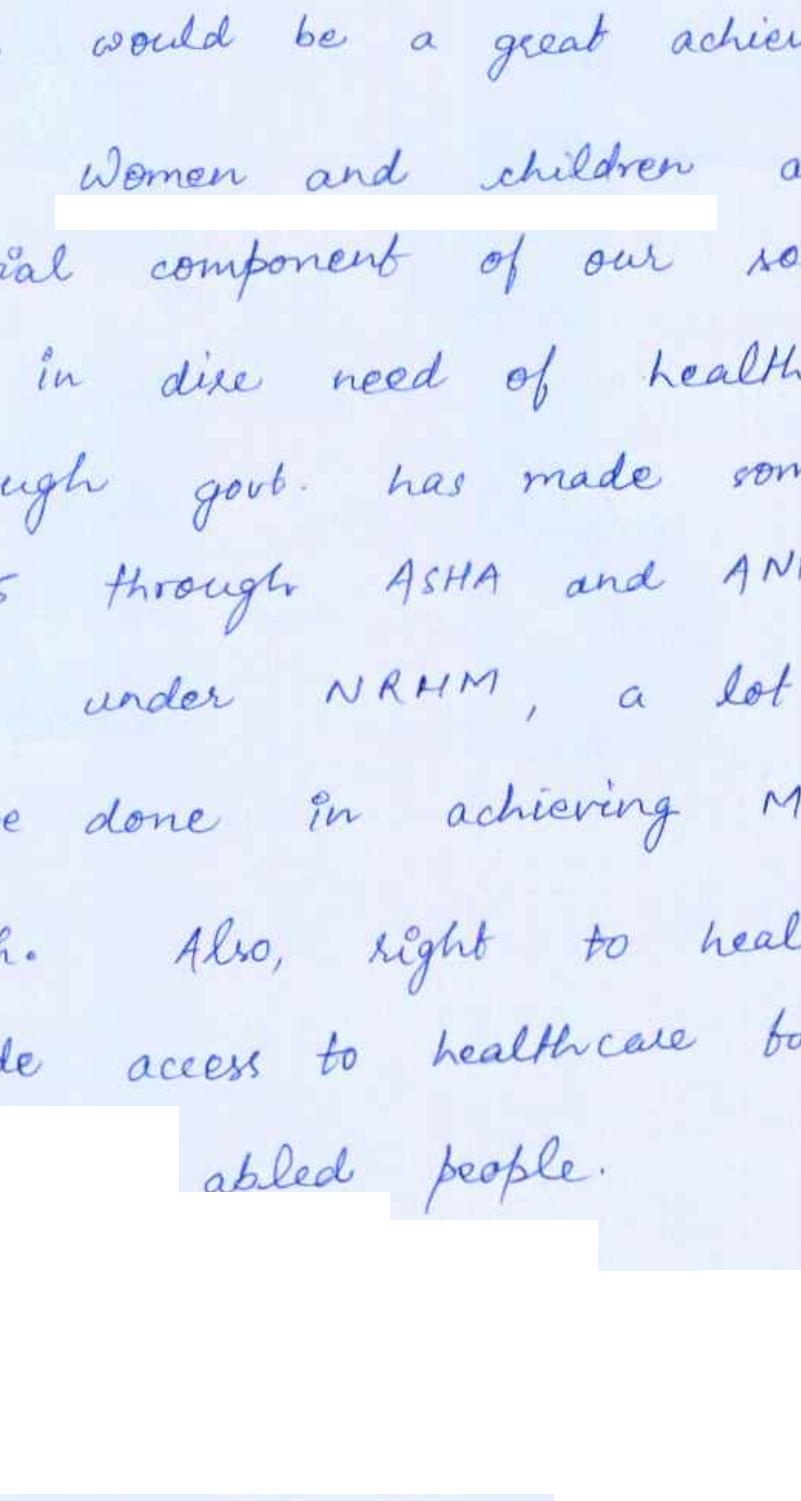 would be a great
Women and children
component of our
in dire need of health
govt. has made
through ASHA and
under NRHM, a lot
done in achieving
Also, right to
access to healthcare
abled people.